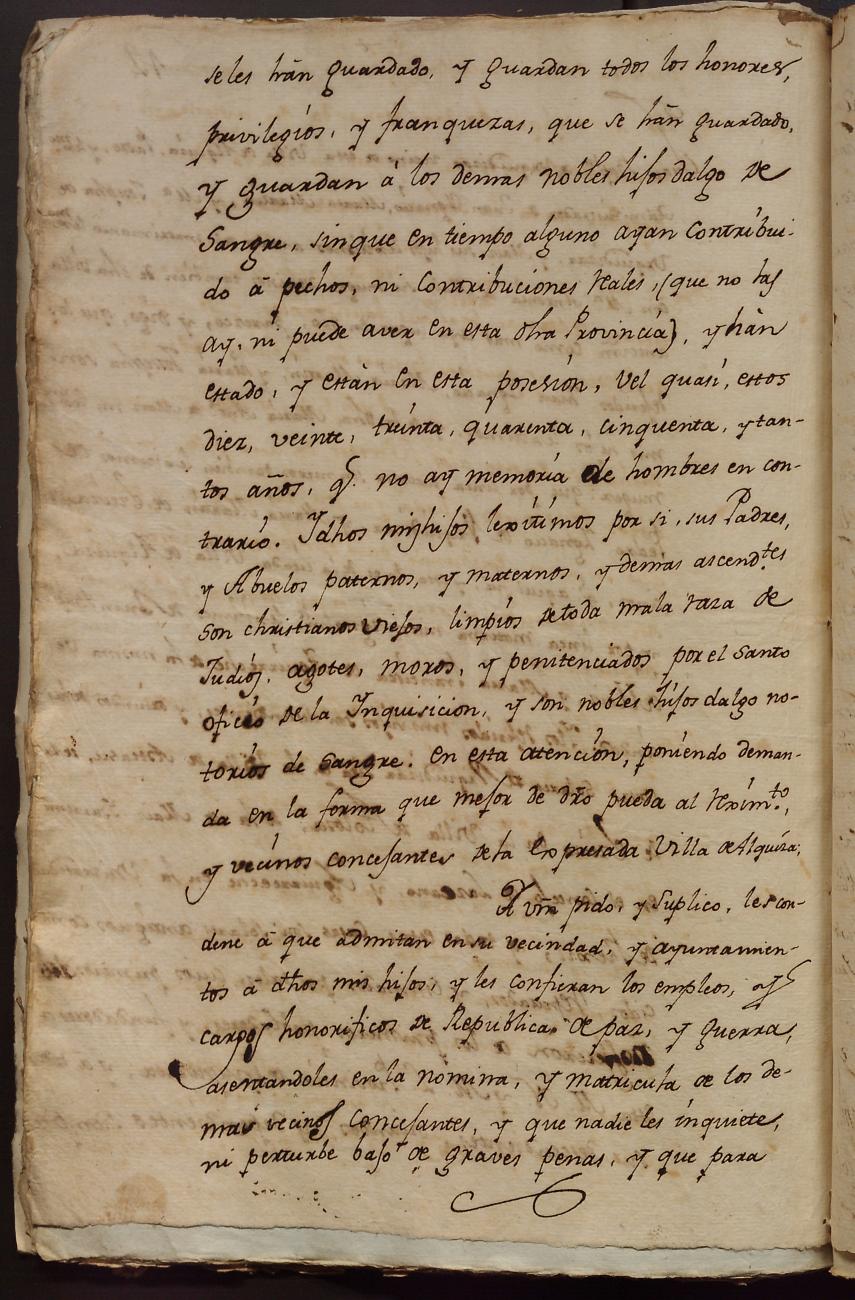 se les hàn guardado, y guardan todos los honores,
privilegiós, y franquezas, que se hàn guardado,
y guardan à los demas nobles hisos dalgo de
Sangre, sin que en tiempo alguno ayan Contribui-
do à pechos, ni Contribuciones reales, (que no las
ay, ni puede aver en esta dha Provinciá), y hàn
estado, y estàn en esta posesión, Vel quasi, estos
diez, veinte, treinta, quarenta, cinquenta, y tan-
tos años, q.e no ay memoria de hombres en con-
trarió. Y dhos mis hisos lexitimos por si, sus Padres,
y Abuelos paternos, y maternos, y demas ascend.tes
son christianos viesos, limpios de toda mala raza de
Judiós, agotes, moros, y penitenciados por el Santo
oficio de la Inquisicion, y son nobles hisos dalgo no-
toriós de Sangre. En esta atención, poniendo deman-
da en la forma que mesor de dro pueda al rexim.to,
y vecinos concesantes de la Expresada Villa de Alquiza;
A vm pido, y Suplico, les con-
dene à que admitan en su vecindad, y ayuntamien-
tos à dhos mis hisos, y les confieran los empleos, y
cargos honorificos de Republica, de paz, y guerra,
asentandoles en la nomina, y matricula de los de-
mas vecinos Concesantes, y que nadie les inquiete,
ni perturbe baso de graves penas, y que para